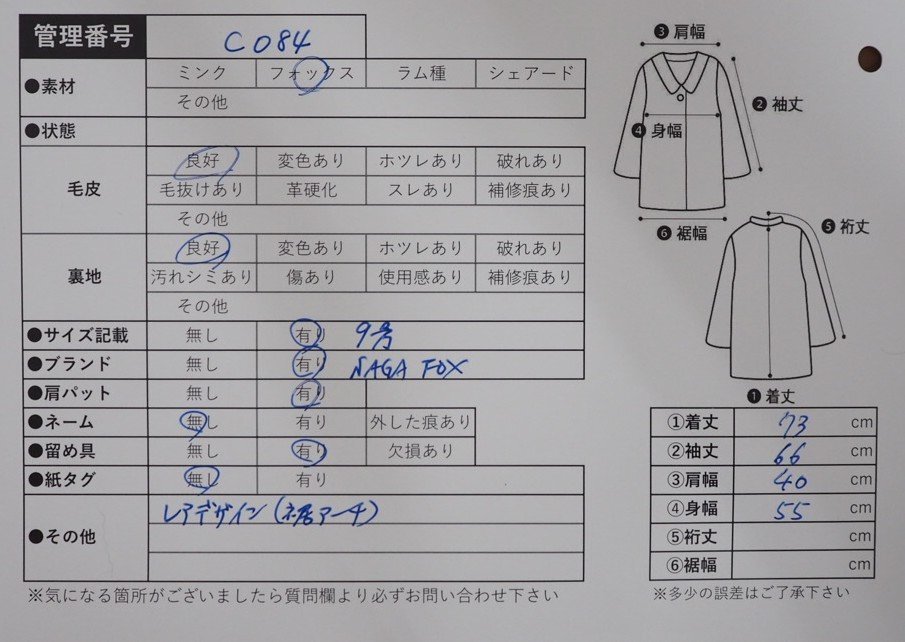 管理番号 C084
●素材 ミンク フォックス ラム種 シェアード
その他
●状態
毛皮 良好 変色あり ホツレあり 破れあり
毛抜けあり 革硬化 スレあり 補修痕あり
その他
裏地 良好 変色あり ホツレあり 破れあり
汚れシミあり 傷あり 使用感あり 補修痕あり
その他
●サイズ記載 無し 有り 9号
●ブランド 無し 有り NAGA FOX
●肩パット 無し 有り
●ネーム 無し 有り 外した痕あり
●留め具 無し 有り 欠損あり
●紙タグ 無し 有り
●その他 レアデザイン(裾アーチ)
※気になる箇所がございましたら質問欄より必ずお問い合わせ下さい
❸肩幅
❷袖丈
❹身幅
❻裾幅
❺裄丈
❶着丈
①着丈 73 cm
②袖丈 66 cm
③肩幅 40 cm
④身幅 55 cm
⑤裄丈 cm
⑥裾幅 cm
※多少の誤差はご了承下さい